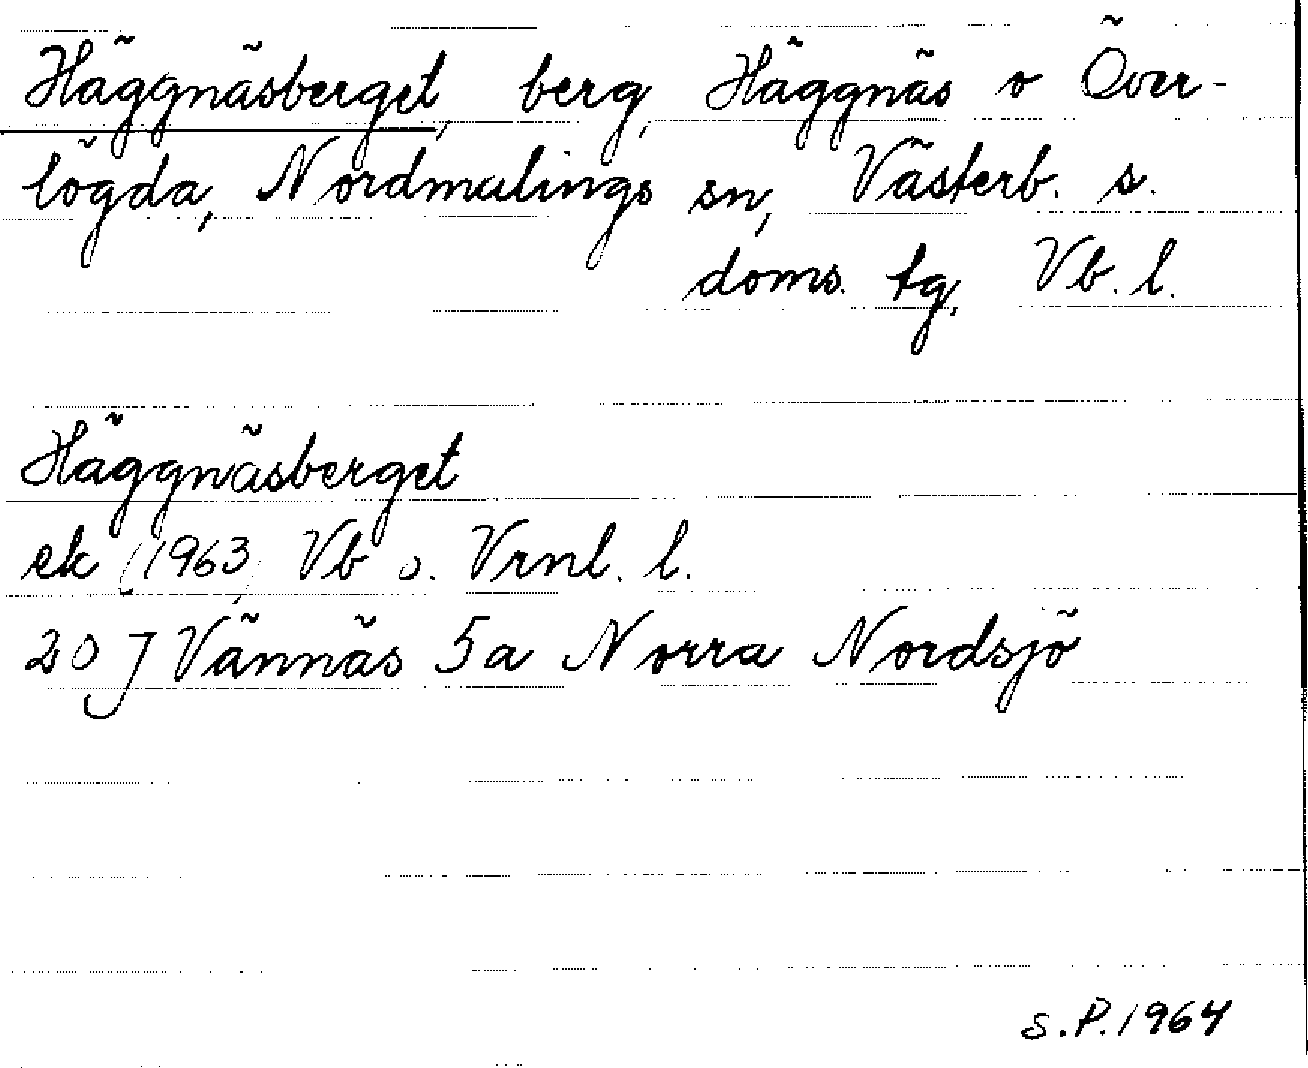 Häggnäsberget, berg, Häggnäs o Över-
lögda, Nordmalings sn, Västerb. s.
doms. tg, Vb. l.
Häggnäsberget
ek (1963) Vb o. Vrnl. l.
20 J Vännäs 5a Norra Nordsjö
S.P. 1964